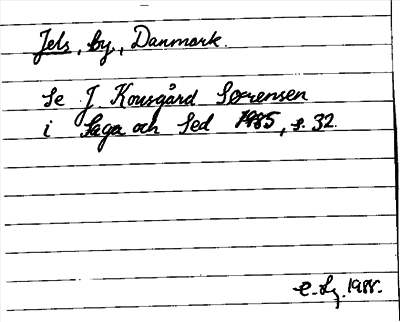 Jels, by, Danmark.
Se J. Kousgård Sørensen
i Saga och Sed 1985, s. 32.
1988.